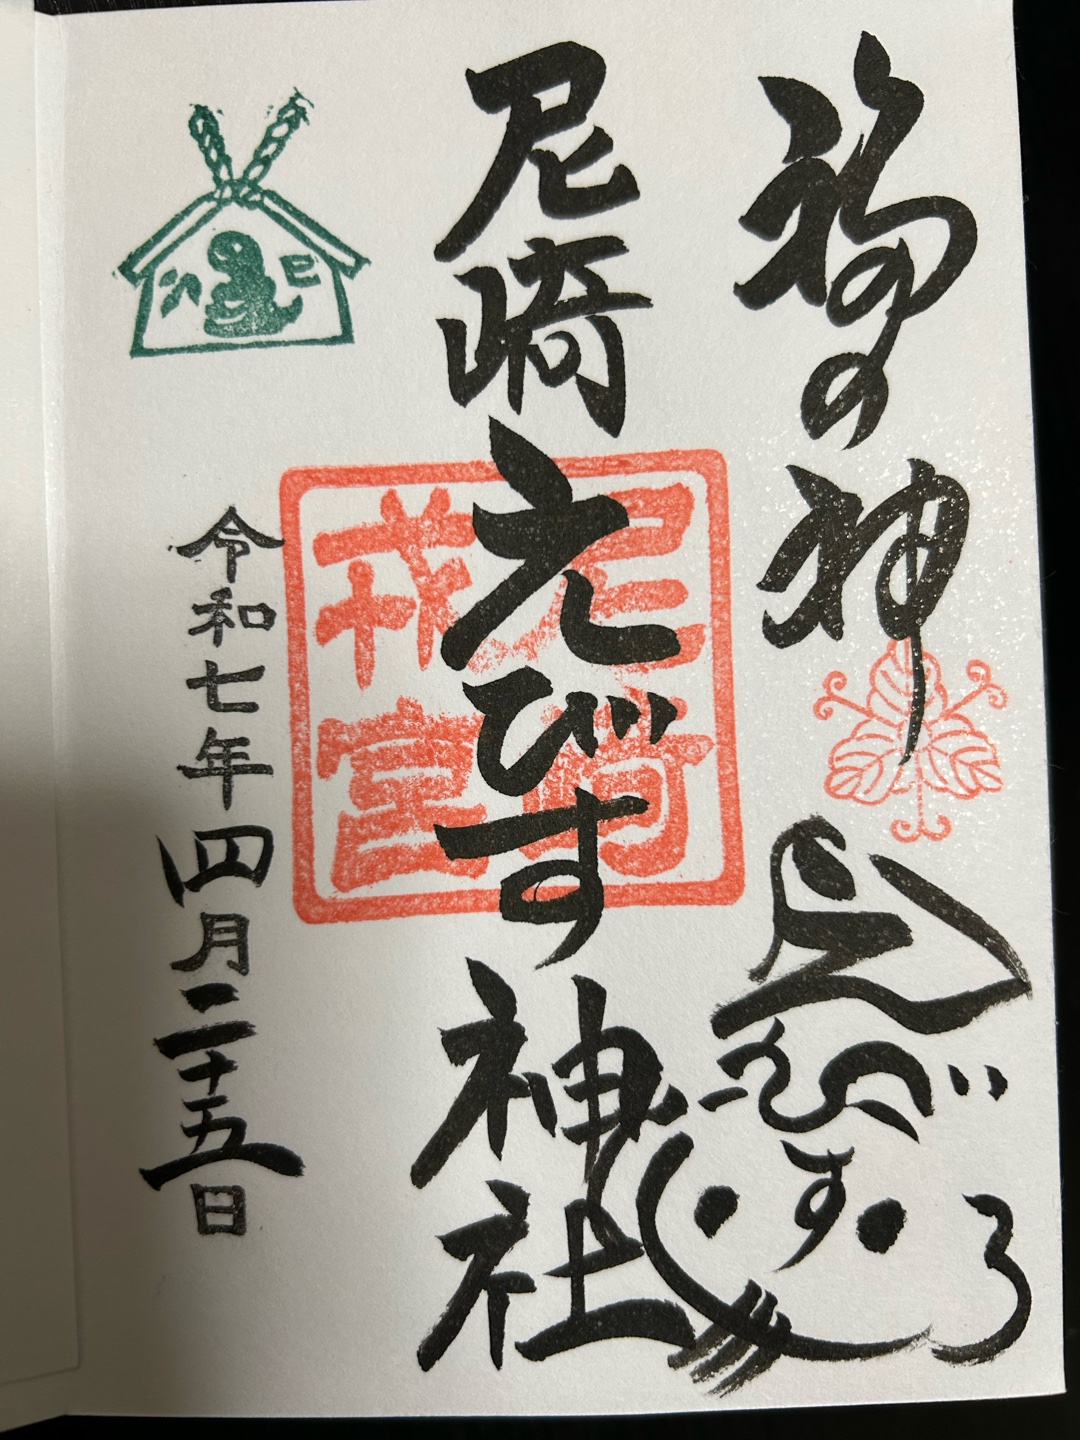 福の神
えびす
尼崎えびす神社
尼崎
戎宮
巳
令和七年四月二十五日